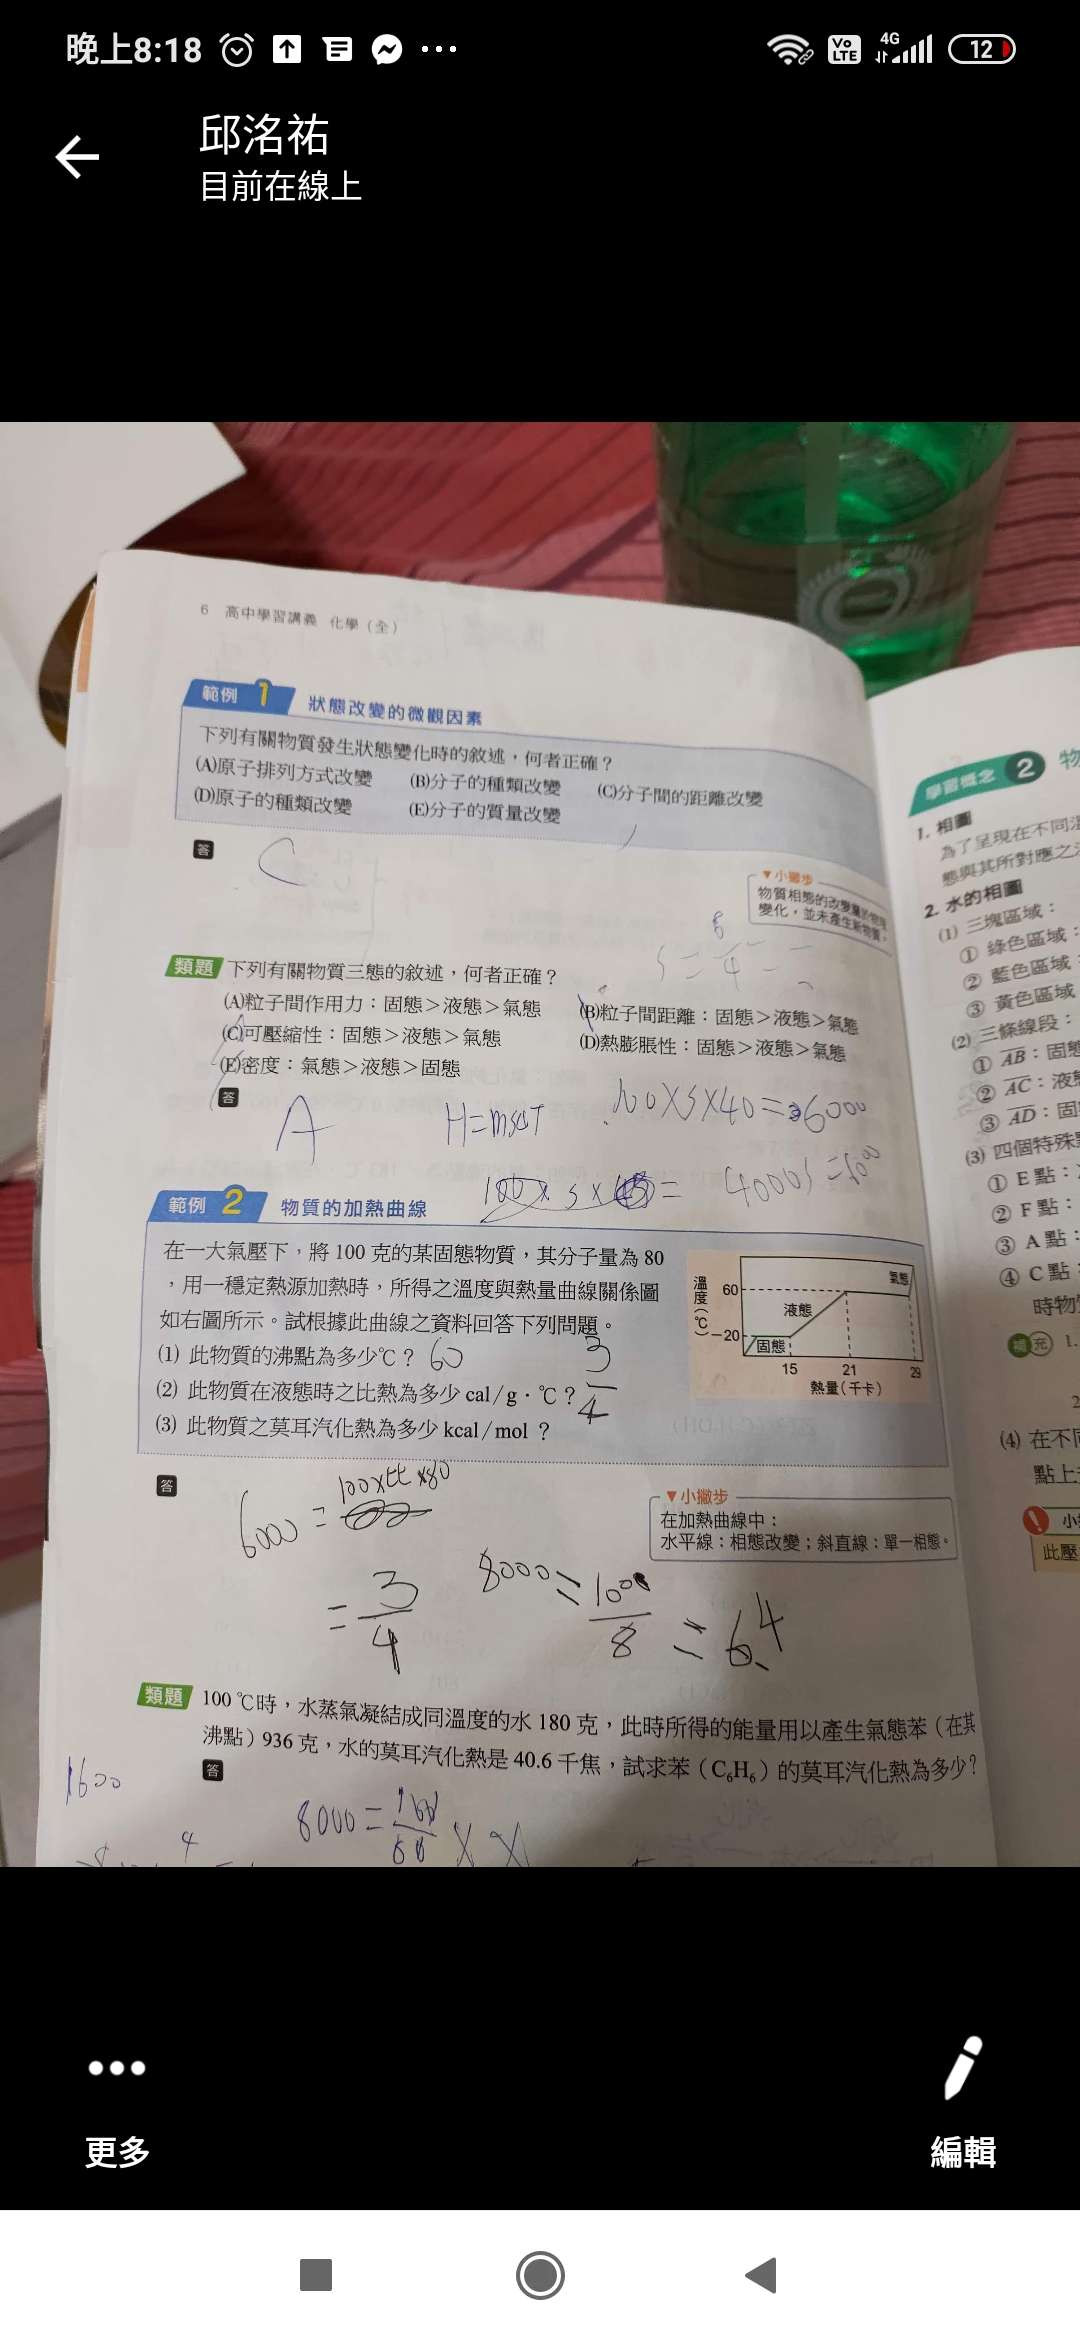 晚上8:18
4G
Vo LTE
12
邱洺祐
目前在線上
6 高中學習講義 化學(全)
範例 1 狀態改變的微觀因素
下列有關物質發生狀態變化時的敘述,何者正確?
(A)原子排列方式改變 (B)分子的種類改變 (C)分子間的距離改變
(D)原子的種類改變 (E)分子的質量改變
答
C
▼小撇步
物質相態的改變屬於物理
變化,並未產生新物質。
類題 下列有關物質三態的敘述,何者正確?
(A)粒子間作用力:固態>液態>氣態 (B)粒子間距離:固態>液態>氣態
(C)可壓縮性:固態>液態>氣態 (D)熱膨脹性:固態>液態>氣態
(E)密度:氣態>液態>固態
答
A
H=msΔT
範例 2 物質的加熱曲線
在一大氣壓下,將 100 克的某固態物質,其分子量為 80
,用一穩定熱源加熱時,所得之溫度與熱量曲線關係圖
如右圖所示。試根據此曲線之資料回答下列問題。
(1) 此物質的沸點為多少℃? 60
(2) 此物質在液態時之比熱為多少 cal/g·℃? 3/4
(3) 此物質之莫耳汽化熱為多少 kcal/mol ?
溫度(℃)
60
-20
氣態
液態
固態
15 21 29
熱量(千卡)
答
6000 =
= 3/4
▼小撇步
在加熱曲線中:
水平線:相態改變;斜直線:單一相態。
= 6.4
類題 100 ℃時,水蒸氣凝結成同溫度的水 180 克,此時所得的能量用以產生氣態苯(在其
沸點)936 克,水的莫耳汽化熱是 40.6 千焦,試求苯(C₆H₆)的莫耳汽化熱為多少?
答
1600
學習概念 2 物
1. 相圖
為了呈現在不同溫
態與其所對應之
2. 水的相圖
(1) 三塊區域:
① 綠色區域:
② 藍色區域:
③ 黃色區域
(2) 三條線段:
① AB:固態
② AC:液
③ AD:固
(3) 四個特殊
① E 點:
② F 點:
③ A 點:
④ C 點:
時物
補充 1.
2
(4) 在不同
點上
小
此壓
更多
編輯